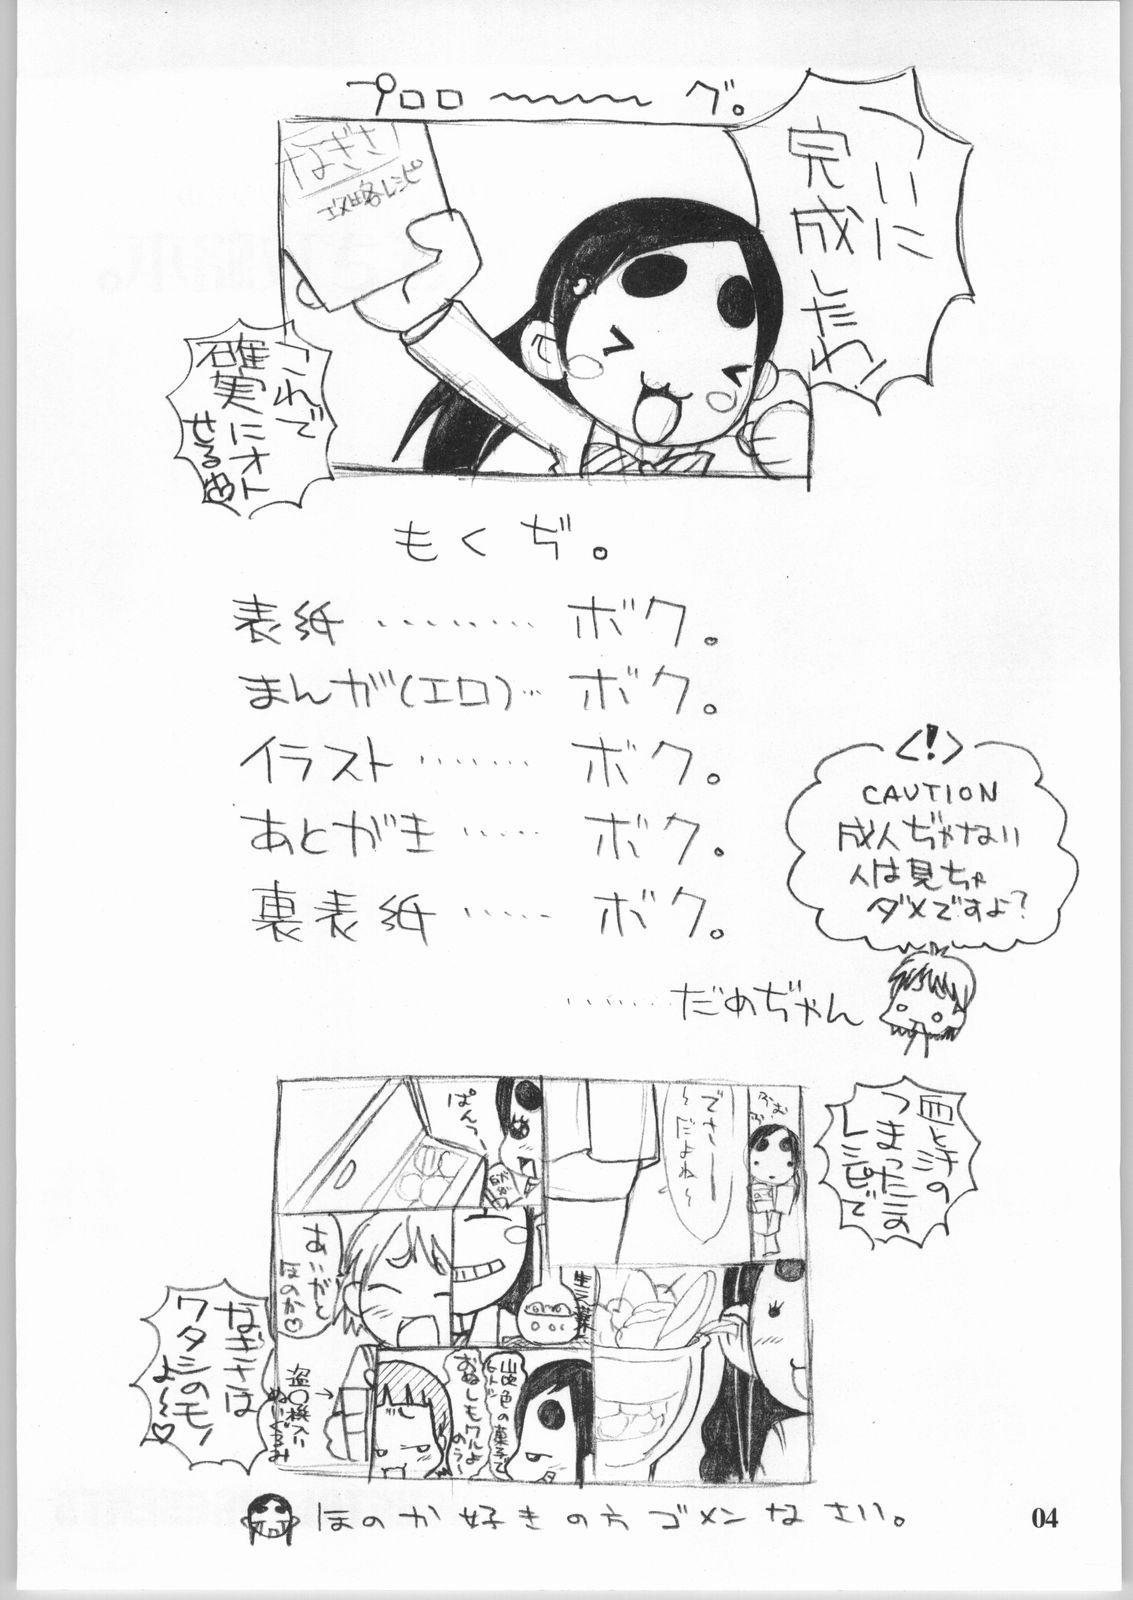 プロロ〜〜〜グ。
ついに
完成したわ!
なぎさ
攻略レシピ
これで
確実にオト
せるわ
もくぢ。
表紙 ‥‥‥‥ ボク。
まんが(エロ)‥ ボク。
イラスト ‥‥‥ ボク。
あとがき ‥‥‥ ボク。
裏表紙 ‥‥‥ ボク。
‥‥‥だめぢゃん
<!>
CAUTION
成人ぢゃない
人は見ちゃ
ダメですよ?
血と汗の
つまったこの
レシピで
でさー
〜だよね〜
ふむ
ふむ
ぱんつ
ありがと
ほのか♡
生
山吹色の菓子で
おぬしもワルよ
のう〜
盗〇機入り
ぬいぐるみ
なぎさは
ワタシのモノ
よ〜♡
ほのか好きの方ゴメンなさい。
04